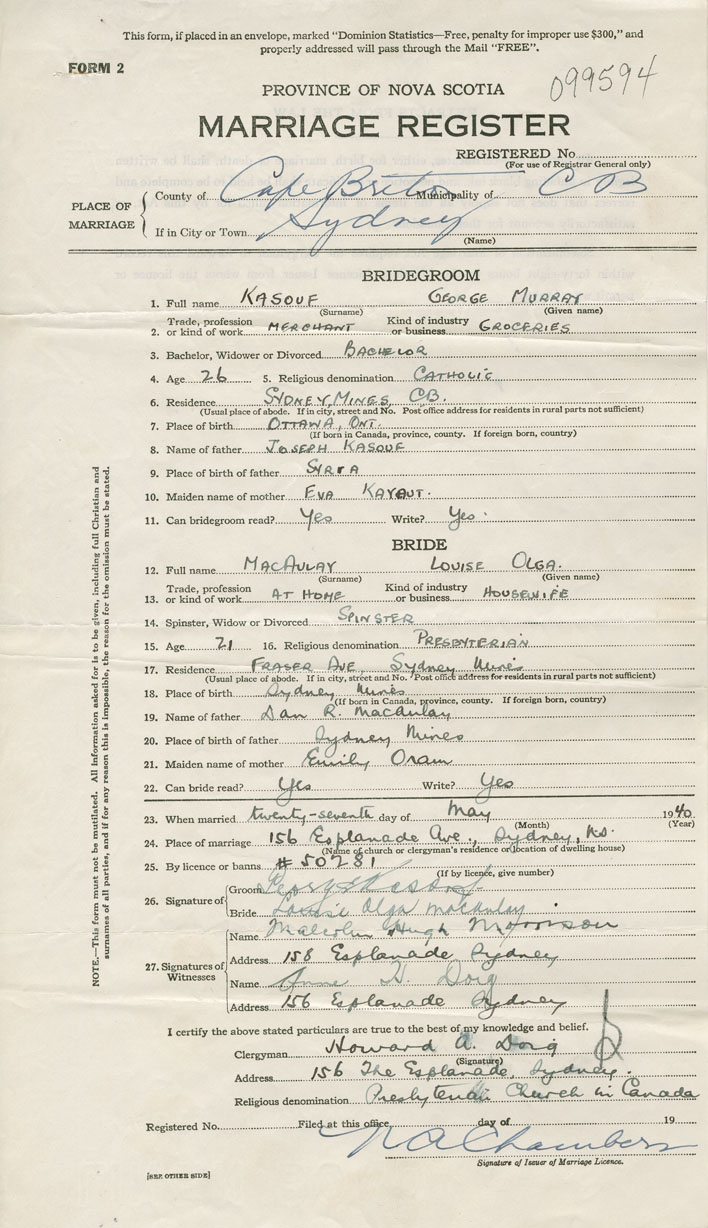 This form, if placed in an envelope, marked "Dominion Statistics—Free, penalty for improper use $300," and
properly addressed will pass through the Mail "FREE".
FORM 2
099594
PROVINCE OF NOVA SCOTIA
MARRIAGE REGISTER
REGISTERED No.
(For use of Registrar General only)
PLACE OF MARRIAGE
County of Cape Breton Municipality of C B
If in City or Town Sydney
(Name)
BRIDEGROOM
1. Full name KASOUF GEORGE MURRAY
(Surname) (Given name)
2. Trade, profession or kind of work MERCHANT Kind of industry or business GROCERIES
3. Bachelor, Widower or Divorced BACHELOR
4. Age 26 5. Religious denomination CATHOLIC
6. Residence SYDNEY MINES, C.B.
(Usual place of abode. If in city, street and No. Post office address for residents in rural parts not sufficient)
7. Place of birth OTTAWA, ONT.
(If born in Canada, province, county. If foreign born, country)
8. Name of father JOSEPH KASOUF
9. Place of birth of father SYRIA
10. Maiden name of mother EVA KAYAUT.
11. Can bridegroom read? Yes Write? Yes.
BRIDE
12. Full name MACAULAY LOUISE OLGA.
(Surname) (Given name)
13. Trade, profession or kind of work AT HOME Kind of industry or business HOUSEWIFE
14. Spinster, Widow or Divorced SPINSTER
15. Age 21 16. Religious denomination PRESBYTERIAN
17. Residence FRASER AVE, Sydney Mines
(Usual place of abode. If in city, street and No. Post office address for residents in rural parts not sufficient)
18. Place of birth Sydney Mines
(If born in Canada, province, county. If foreign born, country)
19. Name of father Dan R. MacAulay
20. Place of birth of father Sydney Mines
21. Maiden name of mother Emily Oram
22. Can bride read? Yes Write? Yes
23. When married twenty-seventh day of May 1940
(Month) (Year)
24. Place of marriage 156 Esplanade Ave., Sydney, N.S.
(Name of church or clergyman's residence or location of dwelling house)
25. By licence or banns # 50281
(If by licence, give number)
26. Signature of
Groom George Kasouf
Bride Louise Olga MacAulay
27. Signatures of Witnesses
Name Malcolm Hugh Morrison
Address 158 Esplanade Sydney
Name Anne H. Doig
Address 156 Esplanade Sydney
I certify the above stated particulars are true to the best of my knowledge and belief.
Clergyman Howard A. Doig
(Signature)
Address 156 The Esplanade, Sydney.
Religious denomination Presbyterian Church in Canada
Registered No. Filed at this office day of 19
N A Chambers
Signature of Issuer of Marriage Licence.
[SEE OTHER SIDE]
NOTE.—This form must not be mutilated. All information asked for is to be given, including full Christian and
surnames of all parties, and if for any reason this is impossible, the reason for the omission must be stated.